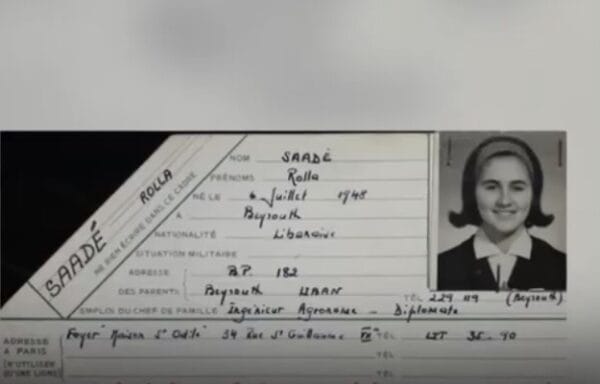 SAADÉ ROLLA
NE RIEN ÉCRIRE DANS CE CADRE
NOM SAADÉ
PRÉNOMS Rolla
NÉ LE 4 Juillet 1948
A Beyrouth
NATIONALITÉ Libanaise
SITUATION MILITAIRE
ADRESSE B.P. 182
DES PARENTS Beyrouth LIBAN TÉL 229 119 (Beyrouth)
EMPLOI DU CHEF DE FAMILLE Ingénieur Agronome - Diplomate
ADRESSE A PARIS Foyer "Maison St Odile" 34 Rue St Guillaume VII TÉL LIT 35-90
(N'UTILISER QU'UNE LIGNE) TÉL
TÉL